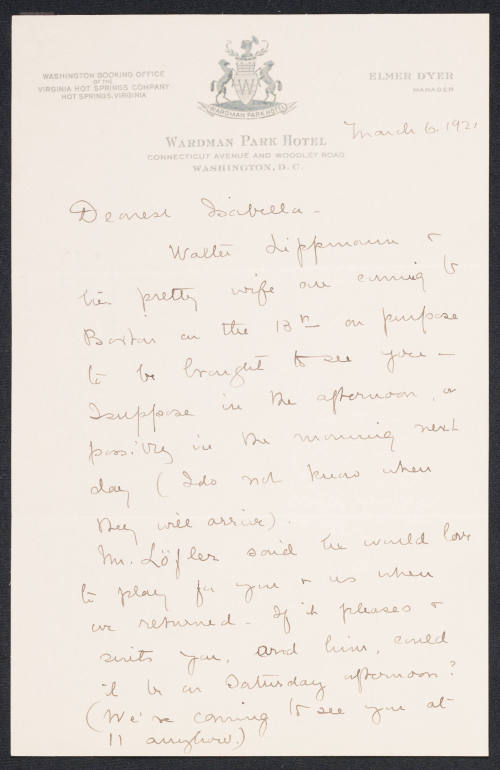 WASHINGTON BOOKING OFFICE
OF THE
VIRGINIA HOT SPRINGS COMPANY
HOT SPRINGS, VIRGINIA
W
WARDMAN PARK HOTEL
ELMER DYER
MANAGER
WARDMAN PARK HOTEL
CONNECTICUT AVENUE AND WOODLEY ROAD
WASHINGTON, D. C.
March 6. 1921
Dearest Isabella -
Walter Lippmann &
his pretty wife are coming to
Boston on the 13th on purpose
to be brought to see you -
I suppose in the afternoon, or
possibly in the morning next
day (I do not know when
they will arrive).
Mr. Löfler said he would love
to play for you & us when
we returned - If it pleases &
suits you, and him, could
it be on Saturday afternoon?
(We're coming to see you at
11 anyhow.)